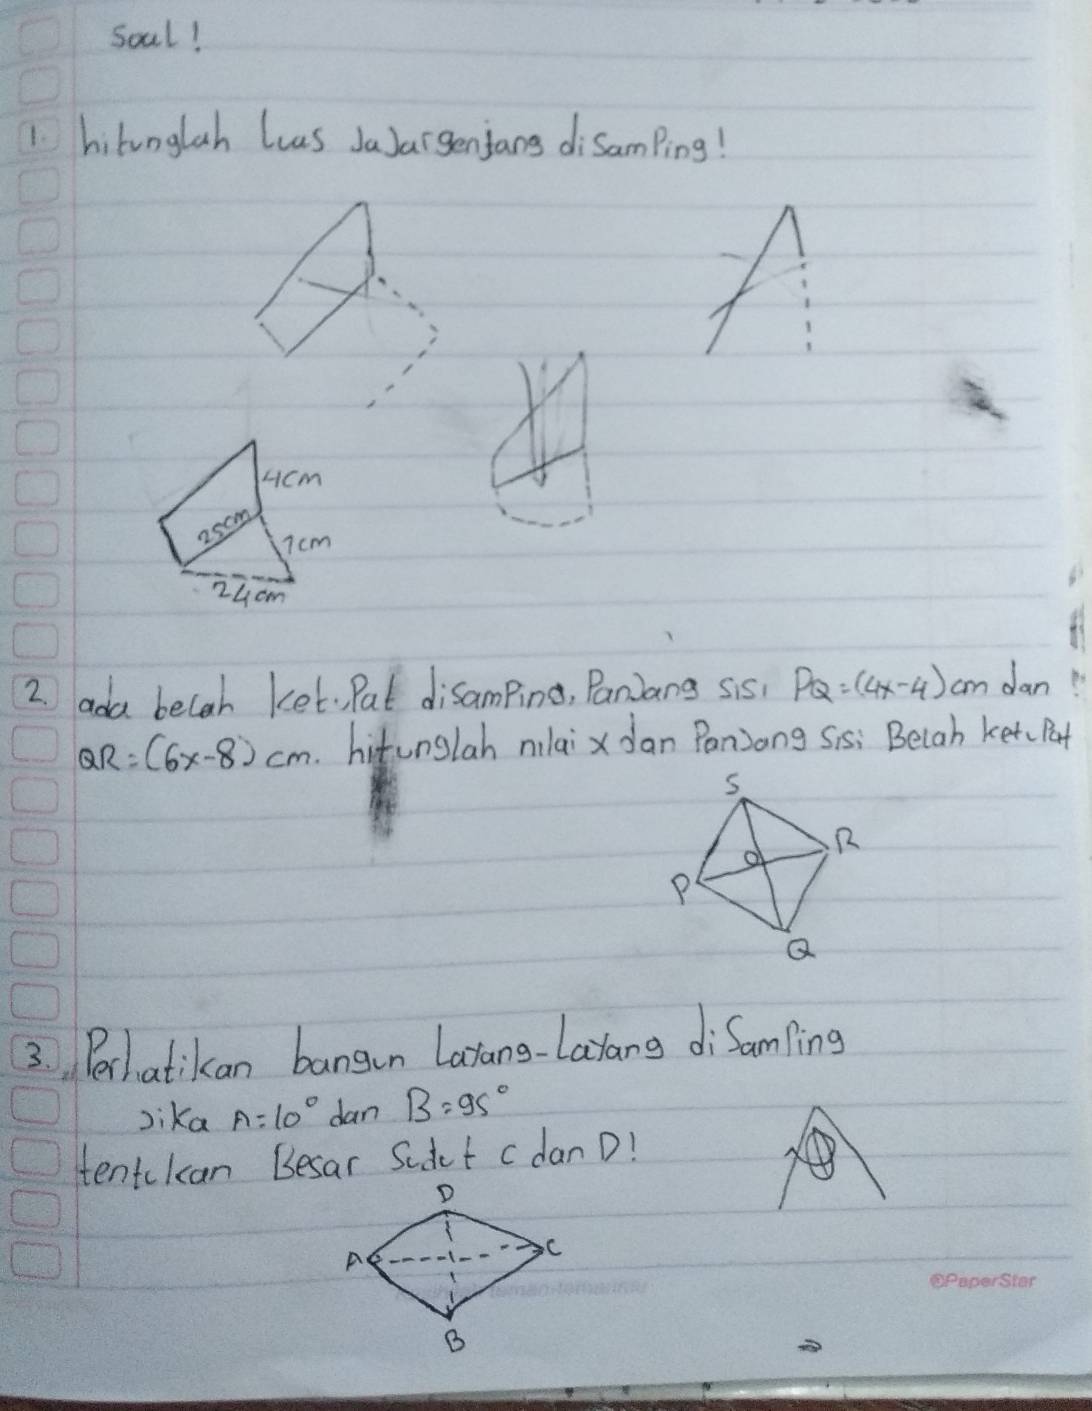 Soal!
1. hitunglah luas JaJargenjang disamping!
4cm
25cm
7cm
24cm
2. ada belah ketupat disamping, Panjang sisi PQ=(4x-4)cm dan
QR=(6x-8) cm. hitunglah nilai x dan Panjang sisi Belah ketupat
S
O
R
P
Q
3. Perhatikan bangun Layang-Layang disamping
Jika A=10° dan B=95°
tentukan Besar Sudut C dan D!
D
A
C
B
®PaperStar